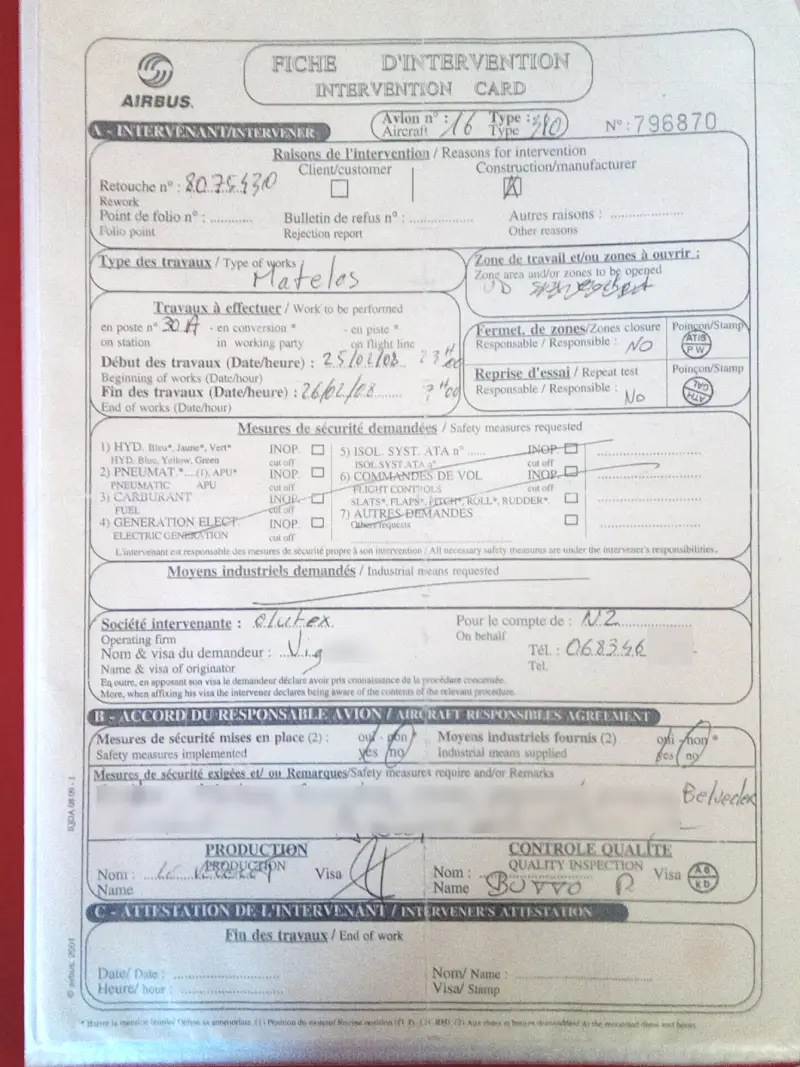 AIRBUS.
FICHE D'INTERVENTION
INTERVENTION CARD
Avion n° : 16 Type :
Aircraft Type
N° : 796870
A - INTERVENANT/INTERVENER
Raisons de l'intervention / Reasons for intervention
Client/customer Construction/manufacturer
Retouche n° : 8075430
Rework
Point de folio n° : ........... Bulletin de refus n° : ................ Autres raisons : ..................
Folio point Rejection report Other reasons
Type des travaux / Type of works
Matelas
Zone de travail et/ou zones à ouvrir :
Zone area and/or zones to be opened
Travaux à effectuer / Work to be performed
en poste n° 30 A - en conversion * - en piste *
on station in working party on flight line
Début des travaux (Date/heure) : 25/02/08 23 H 00
Beginning of works (Date/hour)
Fin des travaux (Date/heure) : 26/02/08 7 H 00
End of works (Date/hour)
Fermet. de zones/Zones closure Poinçon/Stamp
Responsable / Responsible : NO
ATIS
PW
Reprise d'essai / Repeat test Poinçon/Stamp
Responsable / Responsible : No
Mesures de sécurité demandées / Safety measures requested
1) HYD. Bleu*, Jaune*, Vert* INOP.
HYD. Blue, Yellow, Green cut off
2) PNEUMAT.*....(1), APU* INOP.
PNEUMATIC APU cut off
3) CARBURANT INOP.
FUEL cut off
4) GENERATION ELECT. INOP.
ELECTRIC GENERATION cut off
5) ISOL. SYST. ATA n° ...... INOP.
ISOL SYST. ATA n° cut off
6) COMMANDES DE VOL INOP.
FLIGHT CONTROLS cut off
SLATS*, FLAPS*, PITCH*, ROLL*, RUDDER*.
7) AUTRES DEMANDES
Others requests
L'intervenant est responsable des mesures de sécurité propre à son intervention / All necessary safety measures are under the intervener's responsibilities.
Moyens industriels demandés / Industrial means requested
Société intervenante : elutex Pour le compte de : N2
Operating firm On behalf
Nom & visa du demandeur : ...Vig Tél. : 068346
Name & visa of originator Tel.
En outre, en apposant son visa le demandeur déclare avoir pris connaissance de la procédure concernée.
More, when affixing his visa the intervener declares being aware of the contents of the relevant procedure.
B - ACCORD DU RESPONSABLE AVION / AIRCRAFT RESPONSIBLES AGREEMENT
Mesures de sécurité mises en place (2) : oui - non * Moyens industriels fournis (2) oui - non *
Safety measures implemented yes no Industrial means supplied yes no
Mesures de sécurité exigées et/ ou Remarques/Safety measures require and/or Remarks
PRODUCTION CONTROLE QUALITE
PRODUCTION QUALITY INSPECTION
Nom : Visa Nom : BUTTO R Visa
Name Name
C - ATTESTATION DE L'INTERVENANT / INTERVENER'S ATTESTATION
Fin des travaux / End of work
Date/ Date : .................. Nom/ Name : ..................
Heure/ hour : .................. Visa/ Stamp
© airbus, 2001